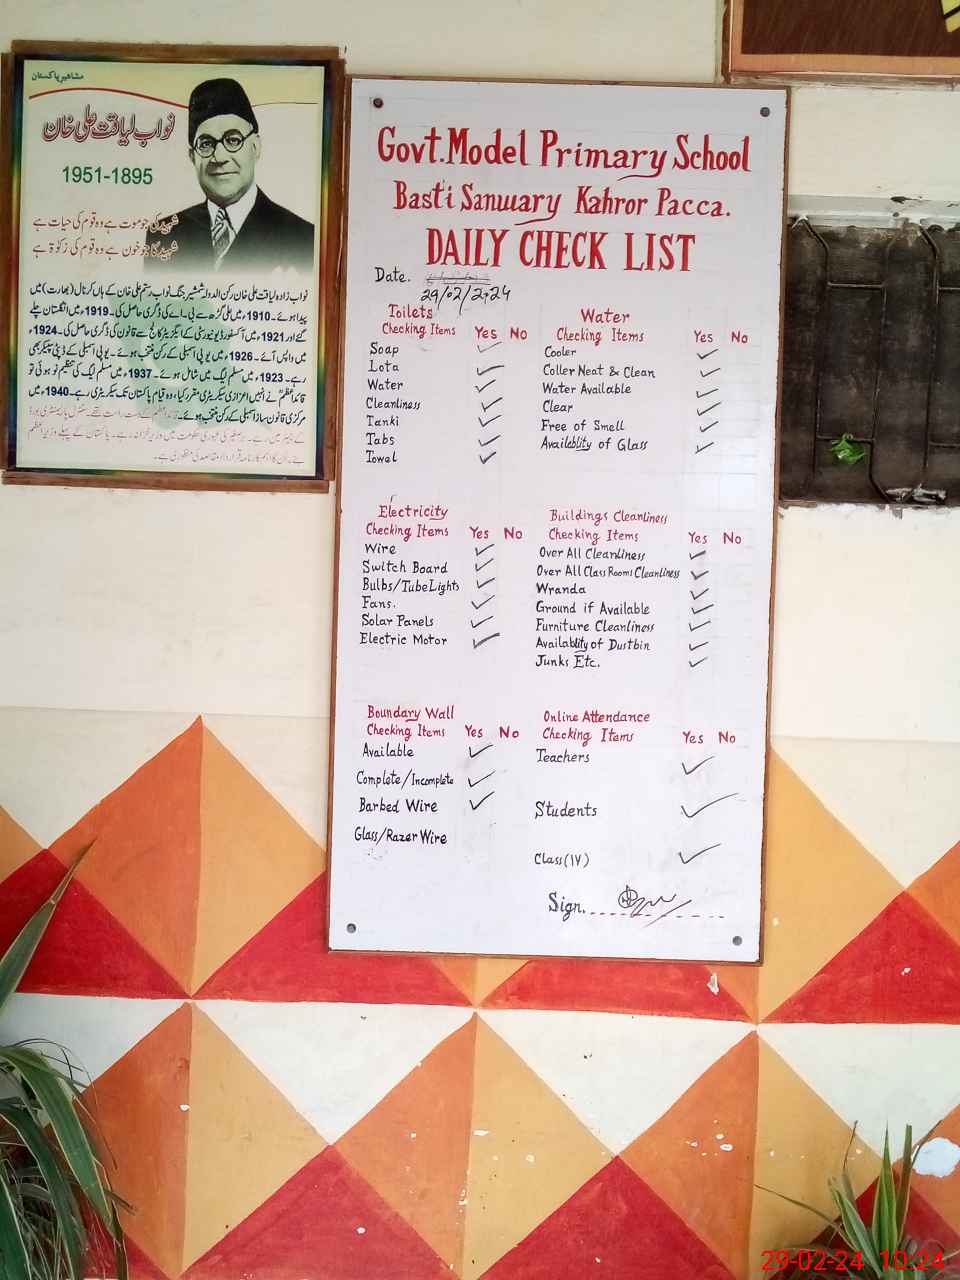 مشاہیرِ پاکستان
نواب لیاقت علی خان
1951-1895
شہید کی جو موت ہے وہ قوم کی حیات ہے
شہید کا جو خون ہے وہ قوم کی زکوٰۃ ہے
نواب زادہ لیاقت علی خان رکن الدولہ شمشیر جنگ نواب رستم علی خان کے ہاں کرنال (بھارت) میں
پیدا ہوئے۔ 1910ء میں علی گڑھ سے بی۔اے کی ڈگری حاصل کی۔ 1919ء میں انگلستان چلے
گئے اور 1921ء میں آکسفورڈ یونیورسٹی کے ایگزیٹر کالج سے قانون کی ڈگری حاصل کی۔ 1924ء
میں واپس آئے۔ 1926ء میں یو پی اسمبلی کے رکن منتخب ہوئے۔ یو پی اسمبلی کے ڈپٹی سپیکر بھی
رہے۔ 1923ء میں مسلم لیگ میں شامل ہوئے۔ 1937ء میں مسلم لیگ کی تنظیم نو ہوئی تو
قائداعظمؒ نے انہیں اعزازی سیکریٹری مقرر کیا، وہ قیام پاکستان تک سیکریٹری رہے۔ 1940ء میں
مرکزی قانون ساز اسمبلی کے رکن منتخب ہوئے۔
Govt.Model Primary School
Basti Sanwary Kahror Pacca.
DAILY CHECK LIST
Date. 29/02/2024
Toilets
Checking Items Yes No
Soap
Lota
Water
Cleanliness
Tanki
Tabs
Towel
Water
Checking Items Yes No
Cooler
Coller Neat & Clean
Water Available
Clear
Free of Smell
Availablity of Glass
Electricity
Checking Items Yes No
Wire
Switch Board
Bulbs/TubeLights
Fans.
Solar Panels
Electric Motor
Buildings Cleanliness
Checking Items Yes No
Over All Cleanliness
Over All Class Rooms Cleanliness
Wranda
Ground if Available
Furniture Cleanliness
Availablity of Dustbin
Junks Etc.
Boundary Wall
Checking Items Yes No
Available
Complete/Incomplete
Barbed Wire
Glass/Razer Wire
Online Attendance
Checking Items Yes No
Teachers
Students
Class(IV)
Sign.
29-02-24 10:24